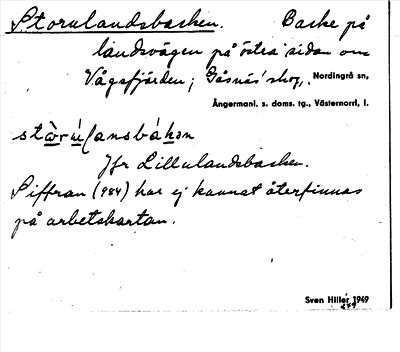 Storulandsbacken. Backe på
landsvägen på östra sidan om
Vågsfjärden; Gåsnäs' skog, Nordingrå sn,
Ångermanl. s. doms. tg., Västernorrl. l.
Jfr Lillulandsbacken.
Siffran (984) har ej kunnat återfinnas
på arbetskartan.
Sven Hiller 1949